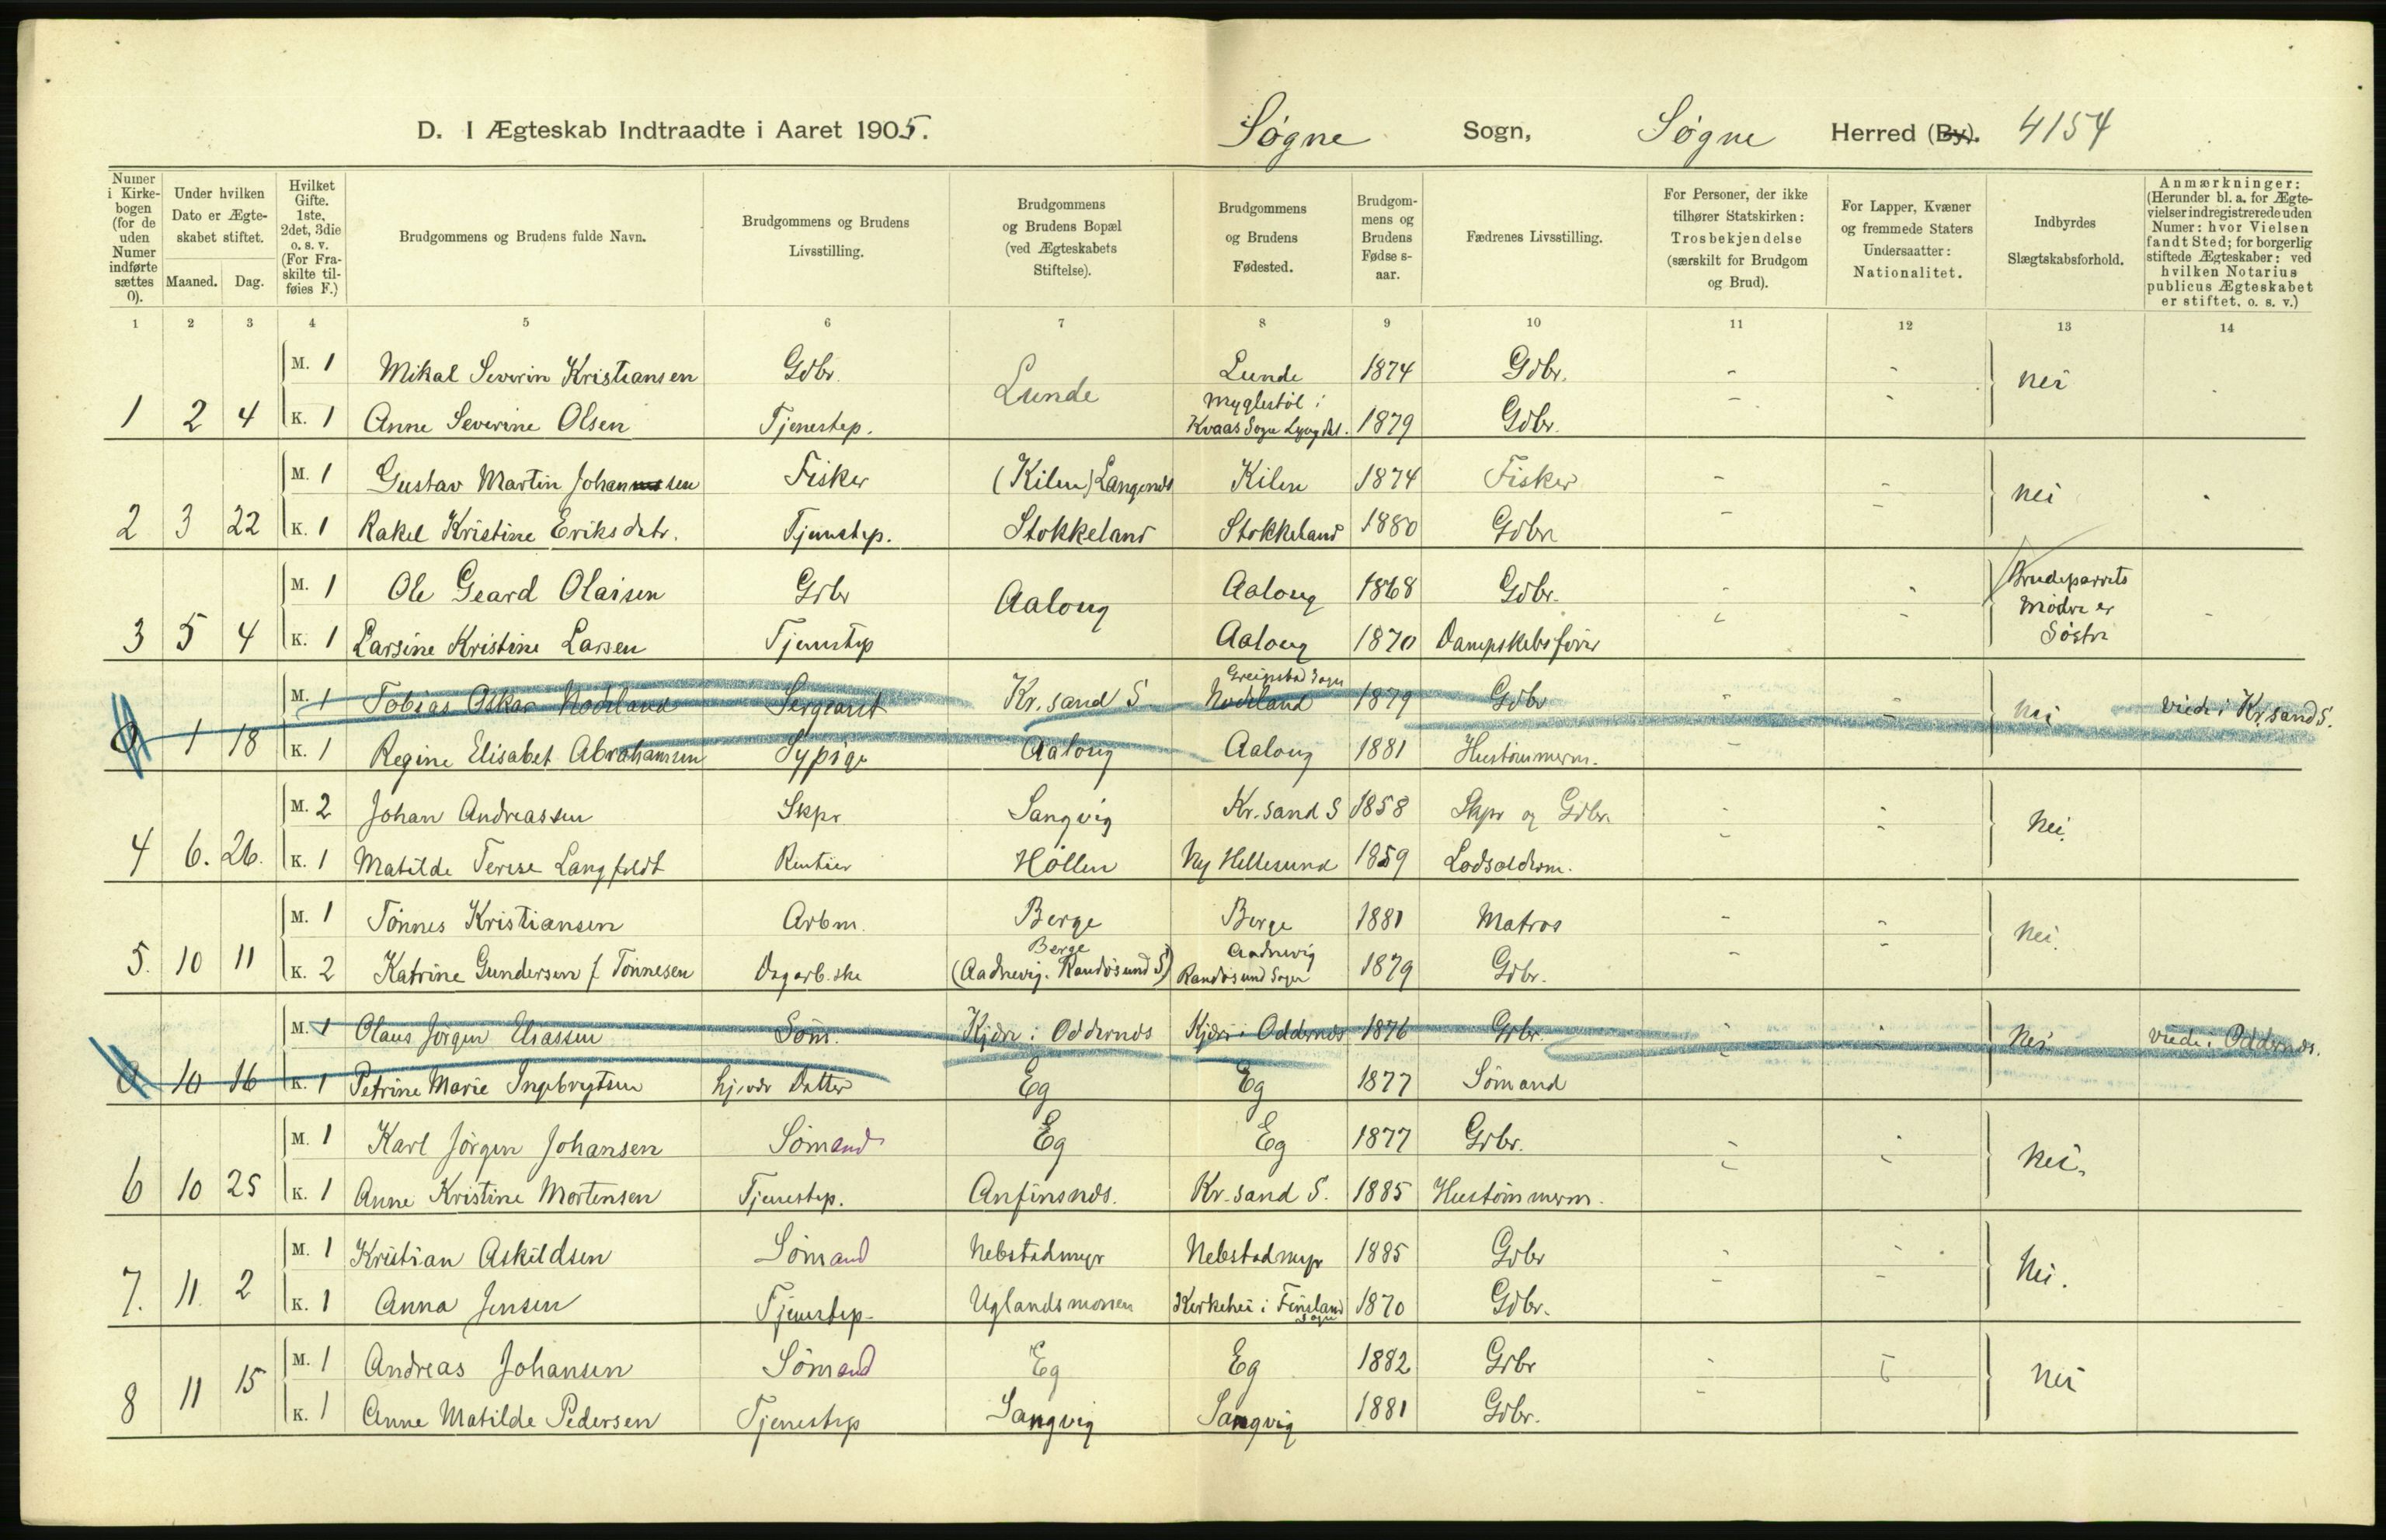 D. I Ægteskab Indtraadte i Aaret 1905. Søgne Sogn, Søgne Herred (By). 4154
Numer i Kirkebogen (for de uden Numer indførte sættes 0).
Under hvilken Dato er Ægteskabet stiftet.
Maaned. Dag.
Hvilket Gifte. 1ste, 2det, 3die o. s. v. (For Fraskilte tilføies F.)
Brudgommens og Brudens fulde Navn.
Brudgommens og Brudens Livsstilling.
Brudgommens og Brudens Bopæl (ved Ægteskabets Stiftelse).
Brudgommens og Brudens Fødested.
Brudgommens og Brudens Fødses-aar.
Fædrenes Livsstilling.
For Personer, der ikke tilhører Statskirken: Trosbekjendelse (særskilt for Brudgom og Brud).
For Lapper, Kvæner og fremmede Staters Undersaatter: Nationalitet.
Indbyrdes Slægtskabsforhold.
Anmærkninger: (Herunder bl. a. for Ægtevielser indregistrerede uden Numer: hvor Vielsen fandt Sted; for borgerlig stiftede Ægteskaber: ved hvilken Notarius publicus Ægteskabet er stiftet, o. s. v.)
1 2 3 4 5 6 7 8 9 10 11 12 13 14
M. 1 Mikal Severin Kristiansen Gdbr. Lunde Lunde 1874 Gdbr. - - nei
1 2 4 K. 1 Anne Severine Olsen Tjenestep. Myglestøl i Kvaas Sogn Lyngdal. 1879 Gdbr. - -
M. 1 Gustav Martin Johansen Fisker (Kilen) Langenes Kilen 1874 Fisker - - nei
2 3 22 K. 1 Rakel Kristine Eriksdatr. Tjenestep. Stokkeland Stokkeland 1880 Gdbr - -
M. 1 Ole Geard Olaisen Gdbr Aalong Aalong 1868 Gdbr. - - Brudeparrets Mødre er Søstre
3 5 4 K. 1 Larsine Kristine Larsen Tjenestep Aalong 1870 Dampskibsfører - -
M. 1 Tobias Oskar Nodeland Sergeant Kr.sand S Greipstad Sogn Nodeland 1879 Gdbr - - nei viede i Kr.sand S.
0 1 18 K. 1 Regine Elisabet Abrahamsen Sypige Aalong Aalong 1881 Hustømmerm. -
M. 2 Johan Andreassen Skpr Langvig Kr.sand S 1858 Skpr og Gdbr. - - Nei.
4 6. 26. K. 1 Matilde Terese Langfeldt Rentier Høllen Ny Hellesund 1859 Lodsolderm. - -
M. 1 Tønnes Kristiansen Arbm. Berge Berge 1881 Matros - - Nei.
5. 10 11 K. 2 Katrine Gundersen f. Tønnesen Dagarb.ske Berge (Aadnevig. Randøsund S) Aadnevig Randøsund Sogn 1879 Gdbr. - -
M. 1 Olaus Jørgen Eliassen Søm. Kjære i Oddernes Kjære i Oddernes 1876 Gdbr. - - Nei viede i Oddernes.
0 10 16 K. 1 Petrine Marie Ingebrytsen hjevær Datter Eg Eg 1877 Sømand - -
M. 1 Karl Jørgen Johansen Sømand Eg Eg 1877 Gdbr. - - Nei.
6 10 25 K. 1 Anne Kristine Mortensen Tjenestep. Anfinsnes. Kr.sand S. 1885 Hustømmerm. - -
M. 1 Kristian Askildsen Sømand Nebstadmyr Nebstadmyr 1885 Gdbr - - Nei.
7. 11. 2 K. 1 Anna Jensen Tjenestep. Uglandsmonen Kirkehei i Finsland Sogn 1870 Gdbr. - -
M. 1 Andreas Johansen Sømand Eg Eg 1882 Gdbr - - Nei
8 11 15 K. 1 Anne Matilde Pedersen Tjenestep Langvig Langvig 1881 Gdbr. - -